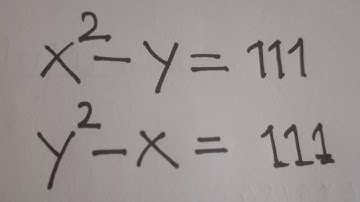 x² - y = 111
y² - x = 111